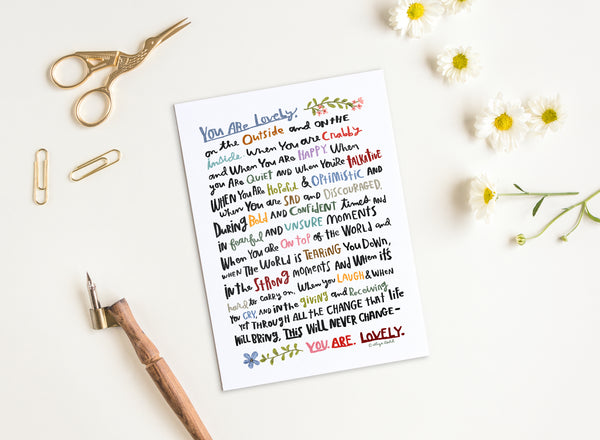 You ARe Lovely.
on the Outside and on the
Inside. When You are Crabby
and When You Are HAPPY. When
you Are Quiet and when You're Talkative
When You Are Hopeful & Optimistic and
when You are SAD and Discouraged.
During Bold and Confident times and
in fearful and Unsure Moments
When You are On top of the World and
when The World is Tearing You Down,
in the Strong moments and When it's
hard to carry on. When you Laugh & When
You Cry, and in the giving and Receiving,
yet Through All the Change that life
Will Bring, This Will Never Change—
You. Are. Lovely.